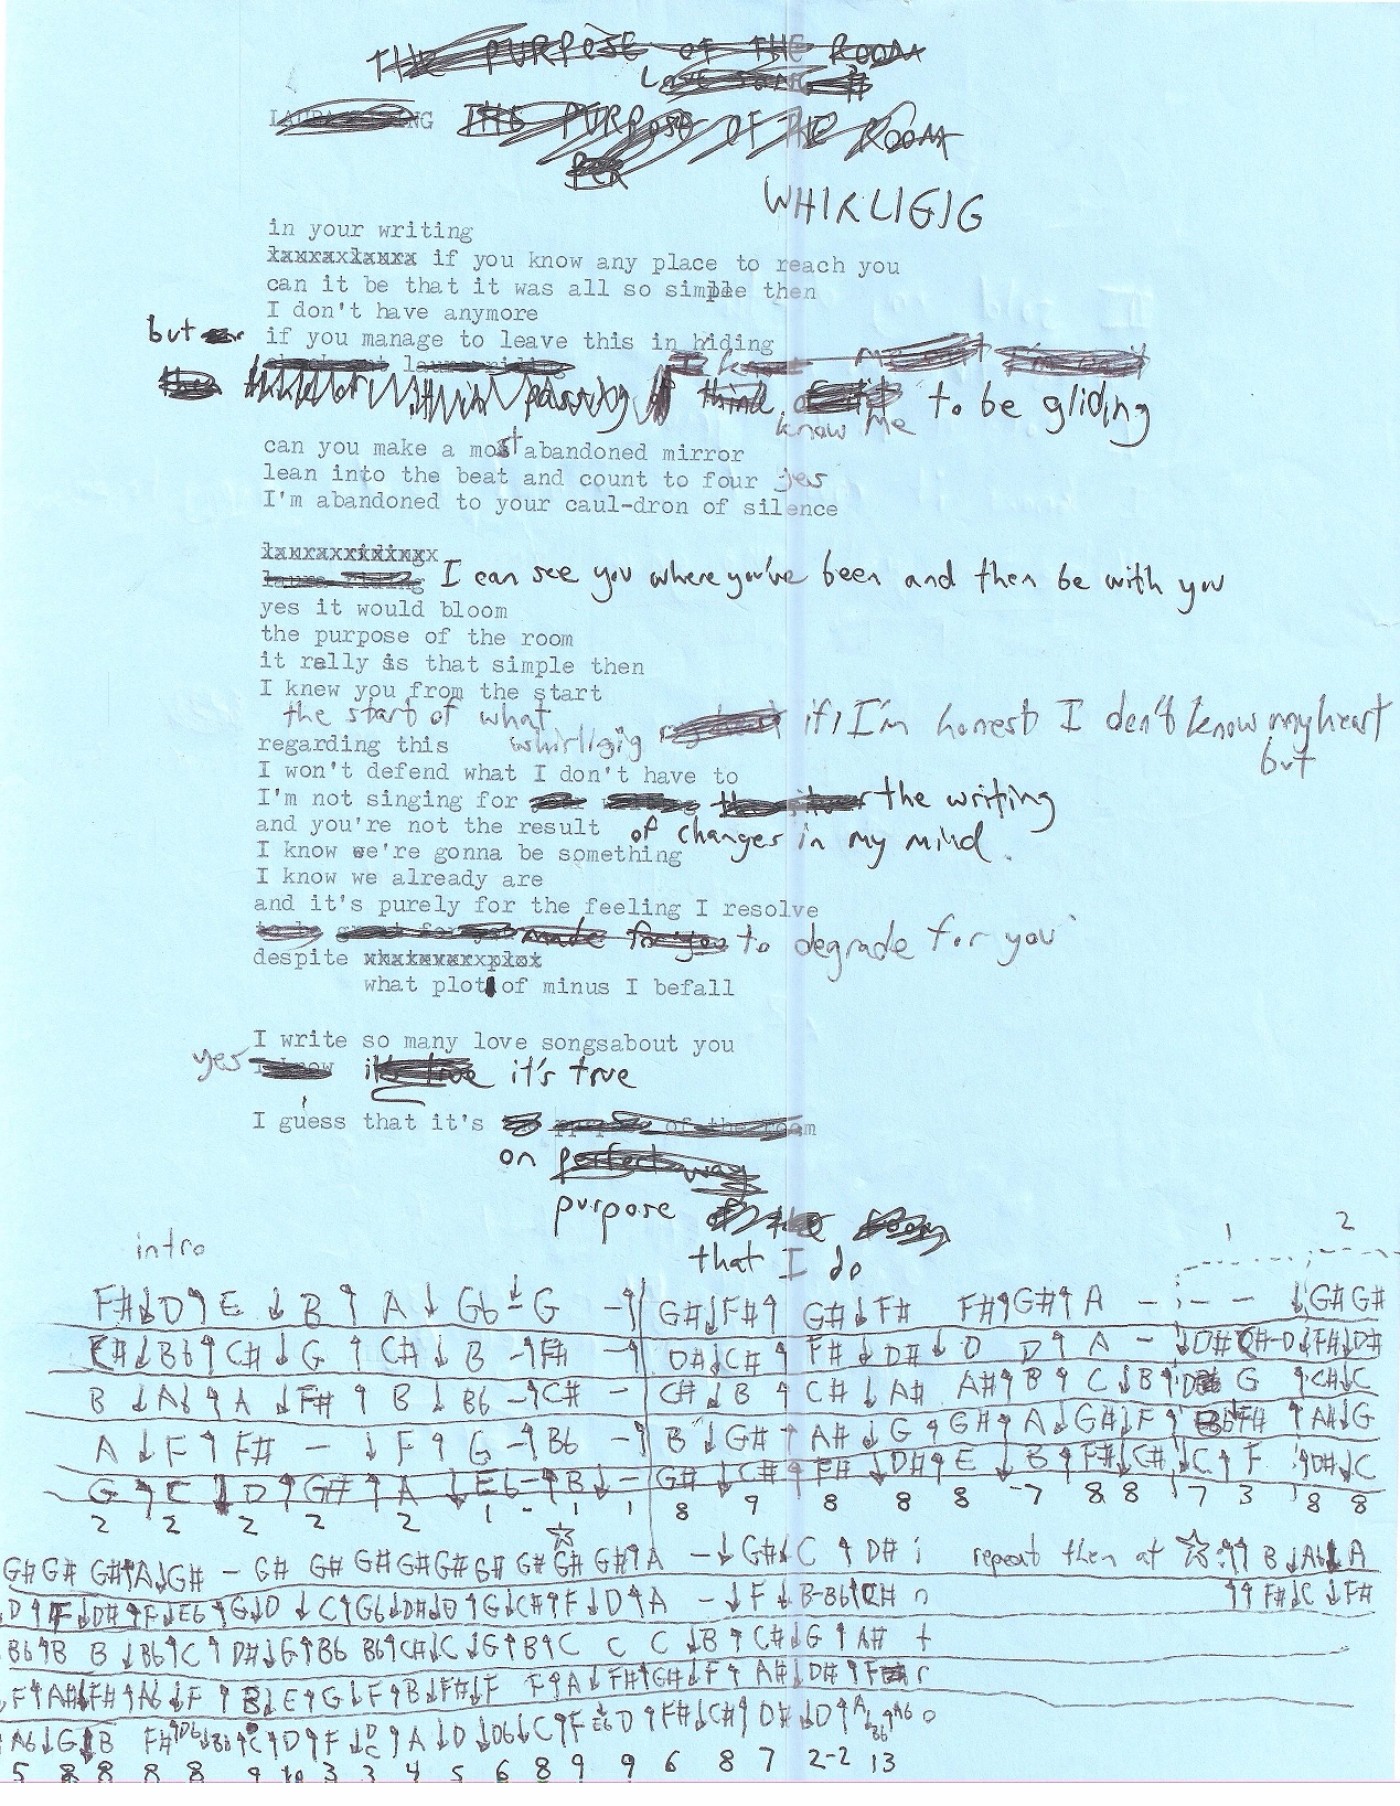 THE PURPOSE OF THE ROOM
LOVE SONG #
THE PURPOSE OF THE ROOM
FOR
WHIRLIGIG
in your writing
if you know any place to reach you
can it be that it was all so simple then
I don't have anymore
but if you manage to leave this in hiding
then passing think know me to be gliding
can you make a most abandoned mirror
lean into the beat and count to four yes
I'm abandoned to your caul-dron of silence
I can see you where you've been and then be with you
yes it would bloom
the purpose of the room
it relly is that simple then
I knew you from the start
the start of what if I'm honest I don't know my heart
regarding this whirligig but
I won't defend what I don't have to
I'm not singing for the writing
and you're not the result of changes in my mind.
I know we're gonna be something
I know we already are
and it's purely for the feeling I resolve
made for you to degrade for you
despite
what plot of minus I befall
I write so many love songsabout you
yes it's true it's true
I guess that it's of the room
on perfect way
purpose of the room
that I do
intro
1 2
F#↓D↑E ↓B↑ A↓ Gb-G -↑ G#↓F#↑ G#↓F# F#↑G#↑A - - - ↓G# G#
C#↓Bb↑C#↓G ↑C#↓B -↑F# -↑ D#↓C# ↑F#↓D#↓D D↑ A - ↓D# C#-D↓F#↓D#
B ↓Ab↑A ↓F# ↑B ↓Bb -↑C# - C#↓B ↑C#↓A# A#↑B↑C↓B↑ G ↑C#↓C
A ↓F↑F# - ↓F↑G -↑Bb -↑ B↓G# ↑A#↓G↑G#↑A↓G#↓F↑ F# ↑A#↓G
G ↑C ↓D↑G#↑A ↓Eb-↑B↓- G# ↓C#↑F# ↓D#↑E ↓B↑F#↓C#↓C↑F ↑D#↓C
2 2 2 2 2 1 1 1 8 9 8 8 8 7 8 8 7 3 8 8
G# G# G#↑A↓G# - G# G# G# G# G# G# G# G# G#↑A -↓G#↓C ↑D# i repeat then at ☆:↑↑B↓Ab↓A
D↑F↓D#↑F↓Eb↑G↓D ↓C↑Gb↓D#↓D↑G↓C#↑F↓D↑A -↓F↓B-Bb↑C# n ↑↑F#↓C↓F#
Bb↑B B↓Bb↑C↑D#↓G↑Bb Bb↑C#↓C↓G↑B↑C C C↓B↑C#↓G↑A# t
F↑A#↓F#↑Ab↓F↑B↓E↑G↓F↑B↓F#↓F F↑A↓F#↑G#↓F↑A#↓D#↑F r
Ab↓G↓B F#↑ C↑D↑F ↑A↓D↓Db↓C↑F D↑F#↓C#↑D#↓D↑A o
5 8 8 8 8 9 10 3 3 4 5 6 8 9 9 6 8 7 2-2 13